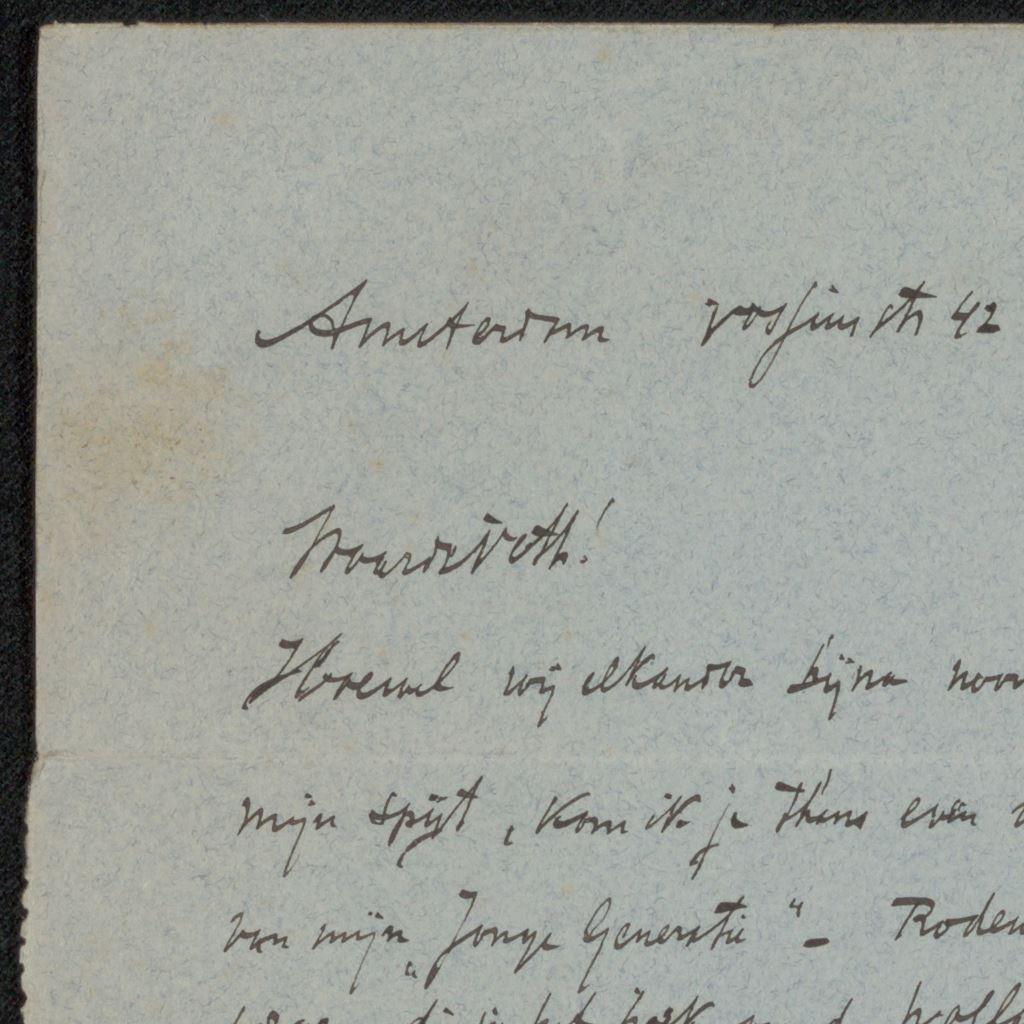 Amsterdam Vossiusstr 42
Waarde Veth!
Hoewel wij elkander bijna nooi
mijn spijt, kom ik je thans even
van mijn „Jonge Generatie“ – Roden
die je het boek